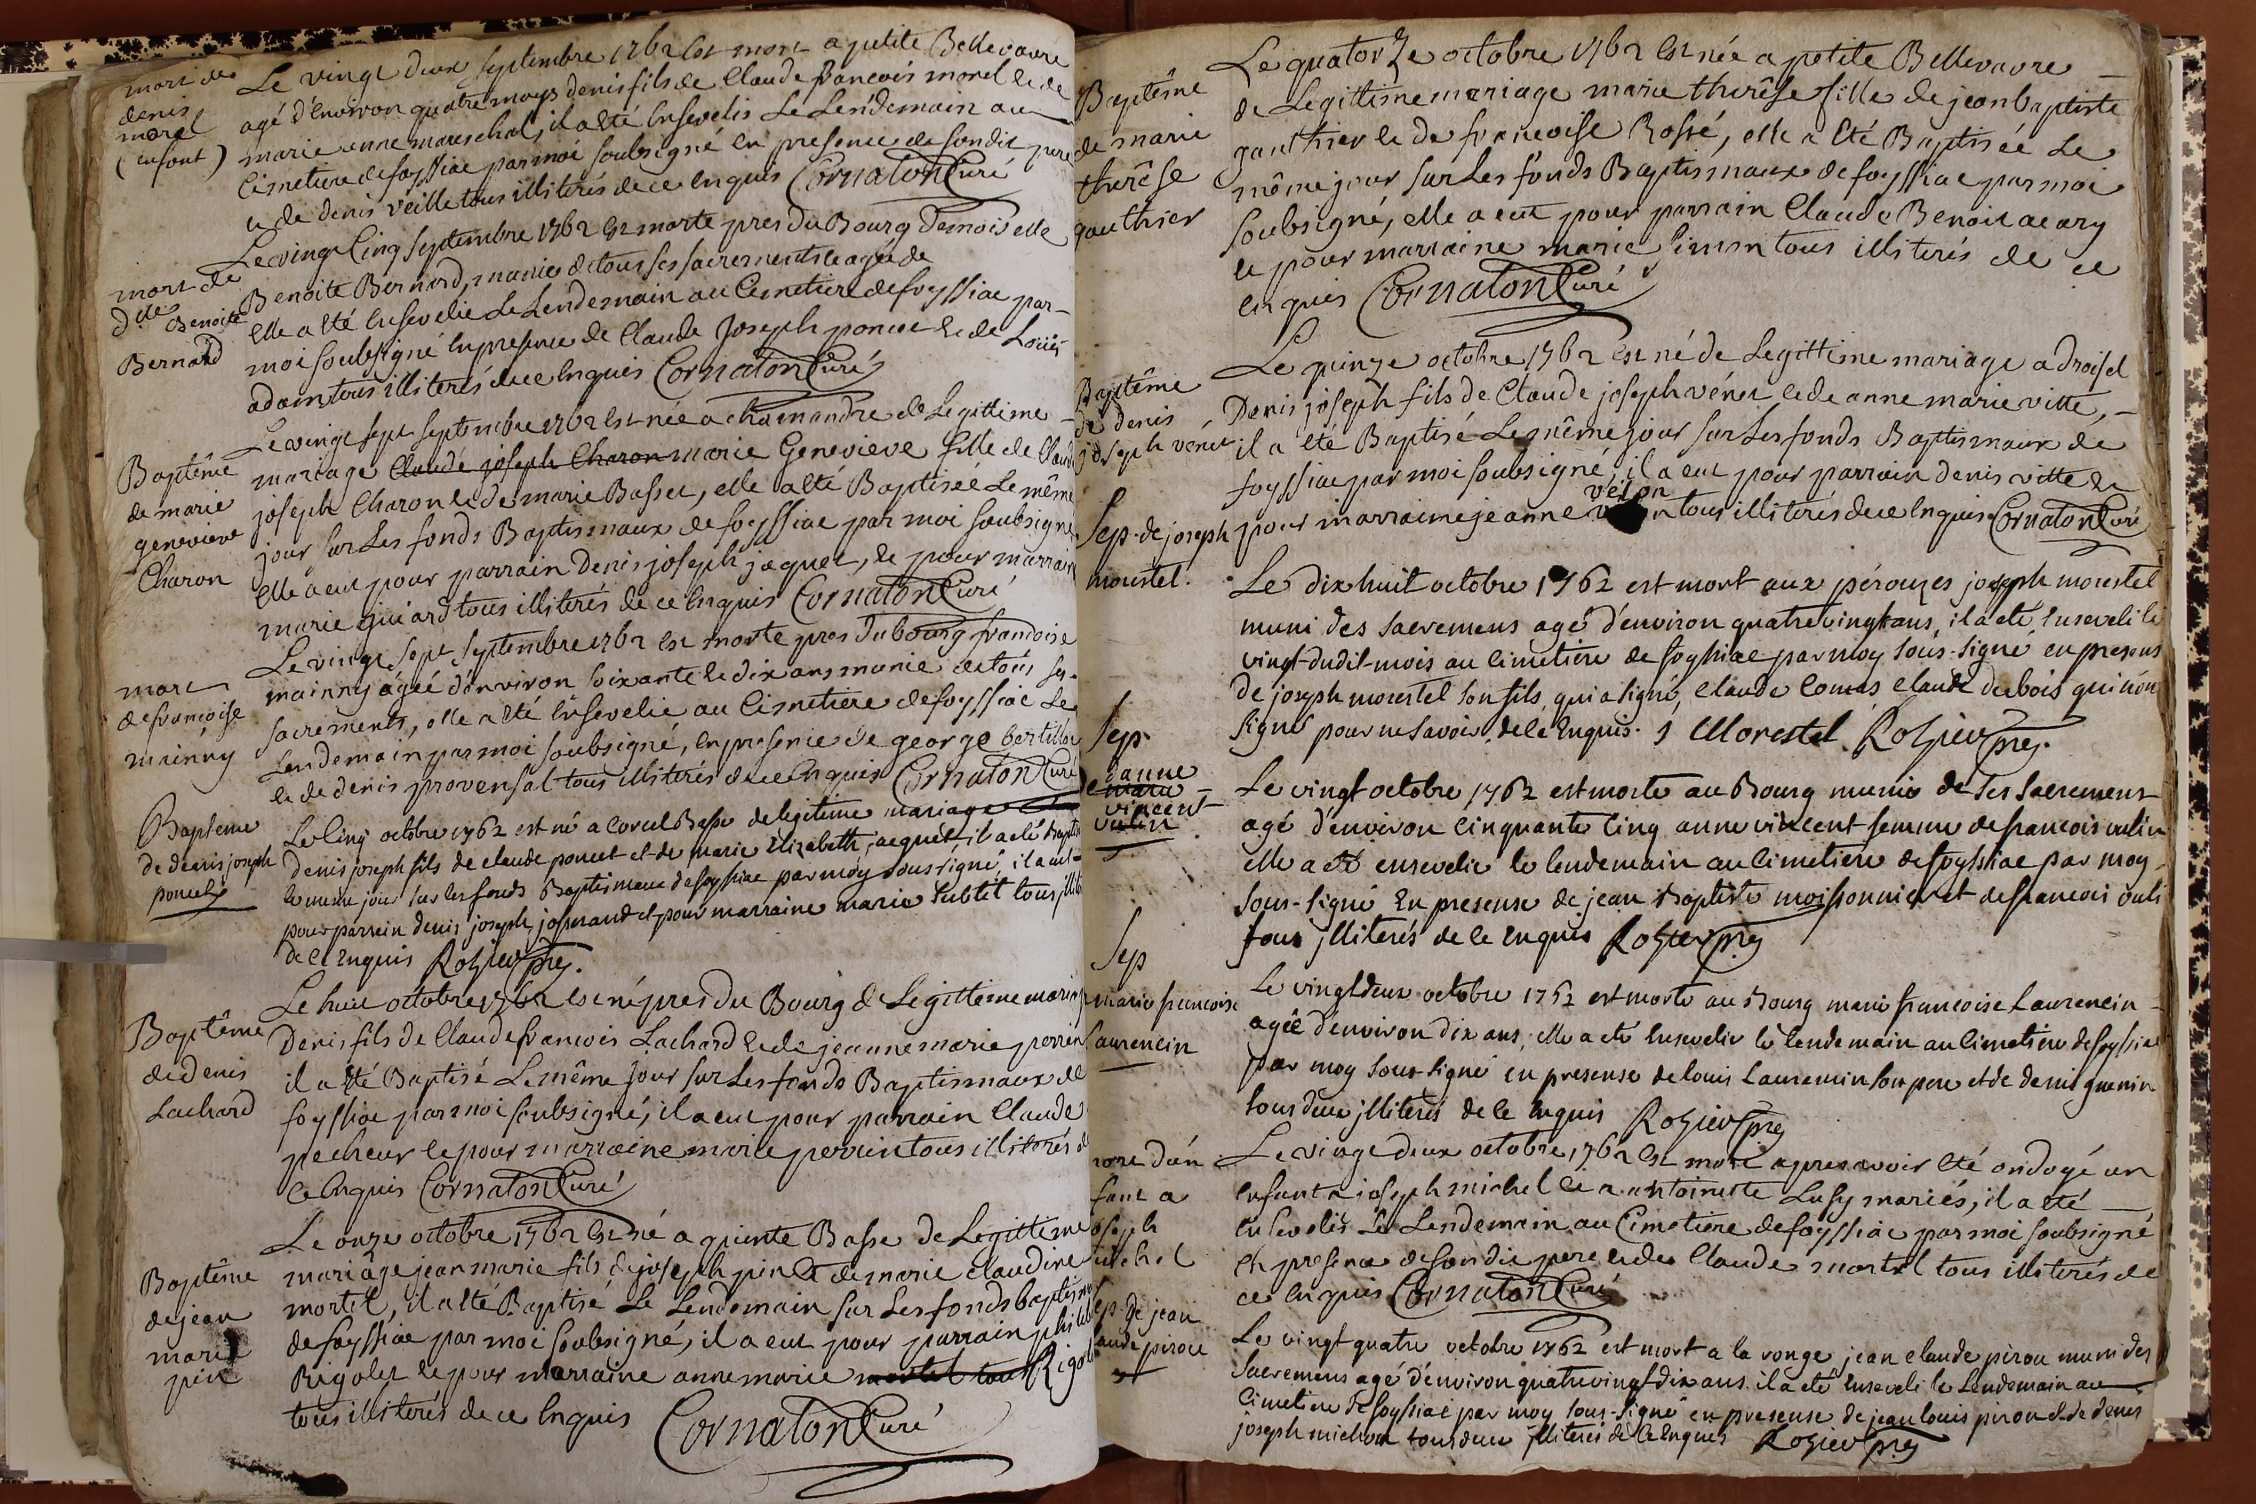 mort de
denis
morel
(enfant)
Le vingt deux septembre 1762 est mort a petite Bellevavre
agé d'Environ quatre moys denis fils de Claude francois morel et de
marie anne mareschal, il a été Ensevelis Le Lendemain au
Cimetiere de foyssiac par moi soubsigné en presence de son dit pere
et de denis veille tous illiterés de ce Enquis Cornaton Curé
mort de
dlle Benoite
Bernard
Le vingt Cinq septembre 1762 est morte pres du Bourg Demoiselle
Benoite Bernard, munie de tous ses sacrements et agée de
elle a été Ensevelie Le Lendemain au Cimetiere de foyssiac par
moi soubsigné En presence de Claude Joseph poncet et de Loüis
adam tous illiterés de ce Enquis Cornaton Curé
Baptême
de marie
genevieve
Charon
Le vingt sept septembre 1762 est née a chamandre de Legittime
mariage Claude joseph Charon marie Genevieve fille de Claude
joseph Charon et de marie Basset, elle a été Baptisée Le même
jour sur Les fonds Baptismaux de foyssiac par moi soubsigné
elle a eut pour parrain Denis joseph jaquet, et pour marraine
marie guiard tous illiterés de ce Enquis Cornaton Curé
mort
de francoise
mainny
Le vingt sept septembre 1762 est morte pres du bourg francoise
mainny agée d'environ soixante et dix ans munie de tous ses
sacrements, elle a été Ensevelie au Cimetiere de foyssiac Le
Lendemain par moi soubsigné, en presence de george bertillot
et de denis provensal tous illiterés de ce Enquis Cornaton Curé
Bapteme
de denis joseph
poncet
Le Cinq octobre 1762 est né a Corcel Basse de legitime mariage
Denis joseph fils de claude poncet et de marie Elizabeth jacquet il a eté Baptisé
le meme jour sur les fonds Baptismaux de foyssiac par moy sous-signé, il a eut
pour parrein denis joseph josserand et pour marraine marie subtil tous illiterés
de ce Enquis Rozier ptre.
Baptême
de denis
Lachard
Le huit octobre 1762 est né pres du Bourg de Legittime mariage
Denis fils de Claude francois Lachard et de jeanne marie perrin
il a été Baptisé Le même jour sur Les fonds Baptismaux de
foyssiac par moi soubsigné, il a eut pour parrain Claude
pecheur et pour marraine marie perrin tous illiterés de
ce Enquis Cornaton Curé
Baptême
de jean
marie
pin
Le onze octobre 1762 est né a quinte Basse de Legittime
mariage jean marie fils de joseph pin et de marie claudine
mortel, il a été Baptisé Le Lendemain sur Les fonds baptismaux
de foyssiac par moi soubsigné, il a eut pour parrain philibert
Rigolet et pour marraine anne marie mortel tous Rigolet
tous illiterés de ce Enquis Cornaton Curé
Baptême
de marie
therêse
gauthier
Le quatorze octobre 1762 est née a petite Bellevavre
de Legittime mariage marie therêse fille de jean baptiste
gauthier et de francoise Rossé, elle a été Baptisée Le
même jour sur Les fonds Baptismaux de foyssiac par moi
soubsigné, elle a eut pour parrain Claude Benoit acary
et pour marraine marie simon tous illiterés de ce
Enquis Cornaton Curé
Baptême
de denis
joseph vénet
Le quinze octobre 1762 est né de Legittime mariage a droisel
Denis joseph fils de Claude joseph vénet et de anne marie vitte,
il a été Baptisé Le même jour sur Les fonds Baptismaux de
foyssiac par moi soubsigné, il a eut pour parrain denis vitte et
pour marraine jeanne velon tous illiterés de ce Enquis Cornaton Curé
Sep. de joseph
morestel.
Le dix huit octobre 1762 est mort aux pérouzes joseph morestel
muni des sacremens agé d'environ quatrevingt ans, il a eté Enseveli le
vingt dudit mois au Cimetiere de foyssiac par moy sous-signé, en presense
de joseph morestel son fils, qui a signé, Claude Comas claude dubois qui n'ont
signé pour ne savoir de ce Enquis. J Morestel Rozier ptre.
Sep.
d'anne
de marie
vincent
vulin
Le vingt octobre 1762 est morte au Bourg munie de ses sacremens
agé d'environ Cinquante Cinq anne vincent femme de francois vulin
elle a eté ensevelie le lendemain au Cimetiere de foyssiac par moy
sous-signé En presense de jean Baptiste moissonnier et de francois vuli
tous jlliterés de ce Enquis Rozier ptre
Sep
marie francoise
Laurencin
Le vingt deux octobre 1762 est morte au Bourg marie francoise Laurencin
agée d'environ dix ans, elle a eté Ensevelie le lendemain au Cimetiere de foyssiac
par moy sous-signé en presense de louis Laurencin son pere et de denis guenin
tous deux jlliterés de ce Enquis Rozier ptre
mort d'un
fant a
oseph
michel
Le vingt deux octobre 1762 est mort apres avoir été ondoyé un
Enfant a joseph michel et a antoinette Lusy mariés, il a été
Ensevelis Le Lendemain au Cimetiere de foyssiac par moi soubsigné
En presence de son dit pere et de Claude mortel tous illiterés de
ce Enquis Cornaton Curé
ep. de jean
laude pirou
Le vingt quatre octobre 1762 est mort a la ronge jean claude pirou muni des
sacremens agé d'environ quatrevingt dix ans il a eté Enseveli le Lendemain au
Cimetiere de foyssiac par moy sous-signé en presense de jean louis pirou et de denis
joseph michon tous deux jlliterés de ce Enquis Rozier ptre